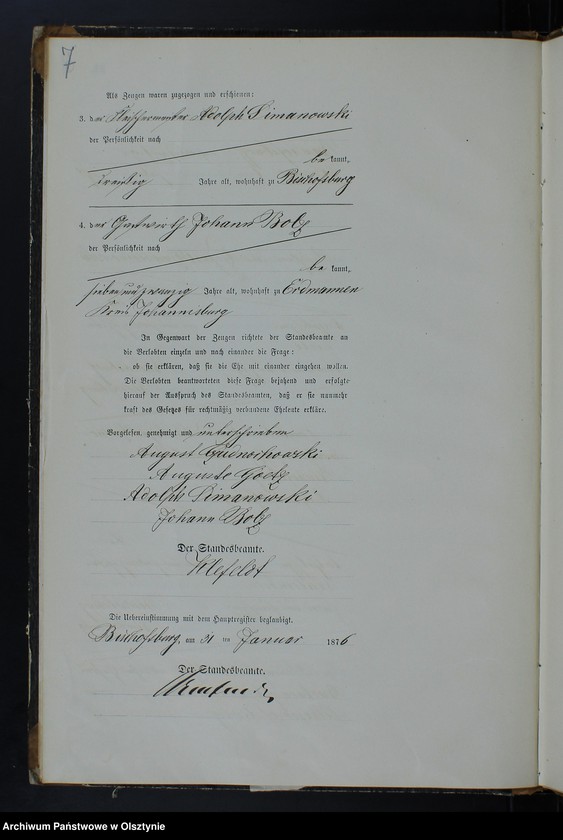 7
Als Zeugen waren zugezogen und erschienen:
3. der Adolph Simanowski
der Persönlichkeit nach
be kannt,
dreißig Jahre alt, wohnhaft zu Bischofsburg
4. der Gastwirth Johann Bolz
der Persönlichkeit nach
be kannt,
siebenundzwanzig Jahre alt, wohnhaft zu Erdmannen
Kreis Johannesburg
In Gegenwart der Zeugen richtete der Standesbeamte an
die Verlobten einzeln und nach einander die Frage:
ob sie erklären, daß sie die Ehe mit einander eingehen wollen.
Die Verlobten beantworteten diese Frage bejahend und erfolgte
hierauf der Ausspruch des Standesbeamten, daß er sie nunmehr
kraft des Gesetzes für rechtmäßig verbundene Eheleute erkläre.
Vorgelesen, genehmigt und unterschrieben
August
Auguste
Adolph Simanowski
Johann Bolz
Der Standesbeamte.
Die Uebereinstimmung mit dem Hauptregister beglaubigt.
Bischofsburg, am 31 ten Januar 1876
Der Standesbeamte.
Archiwum Państwowe w Olsztynie